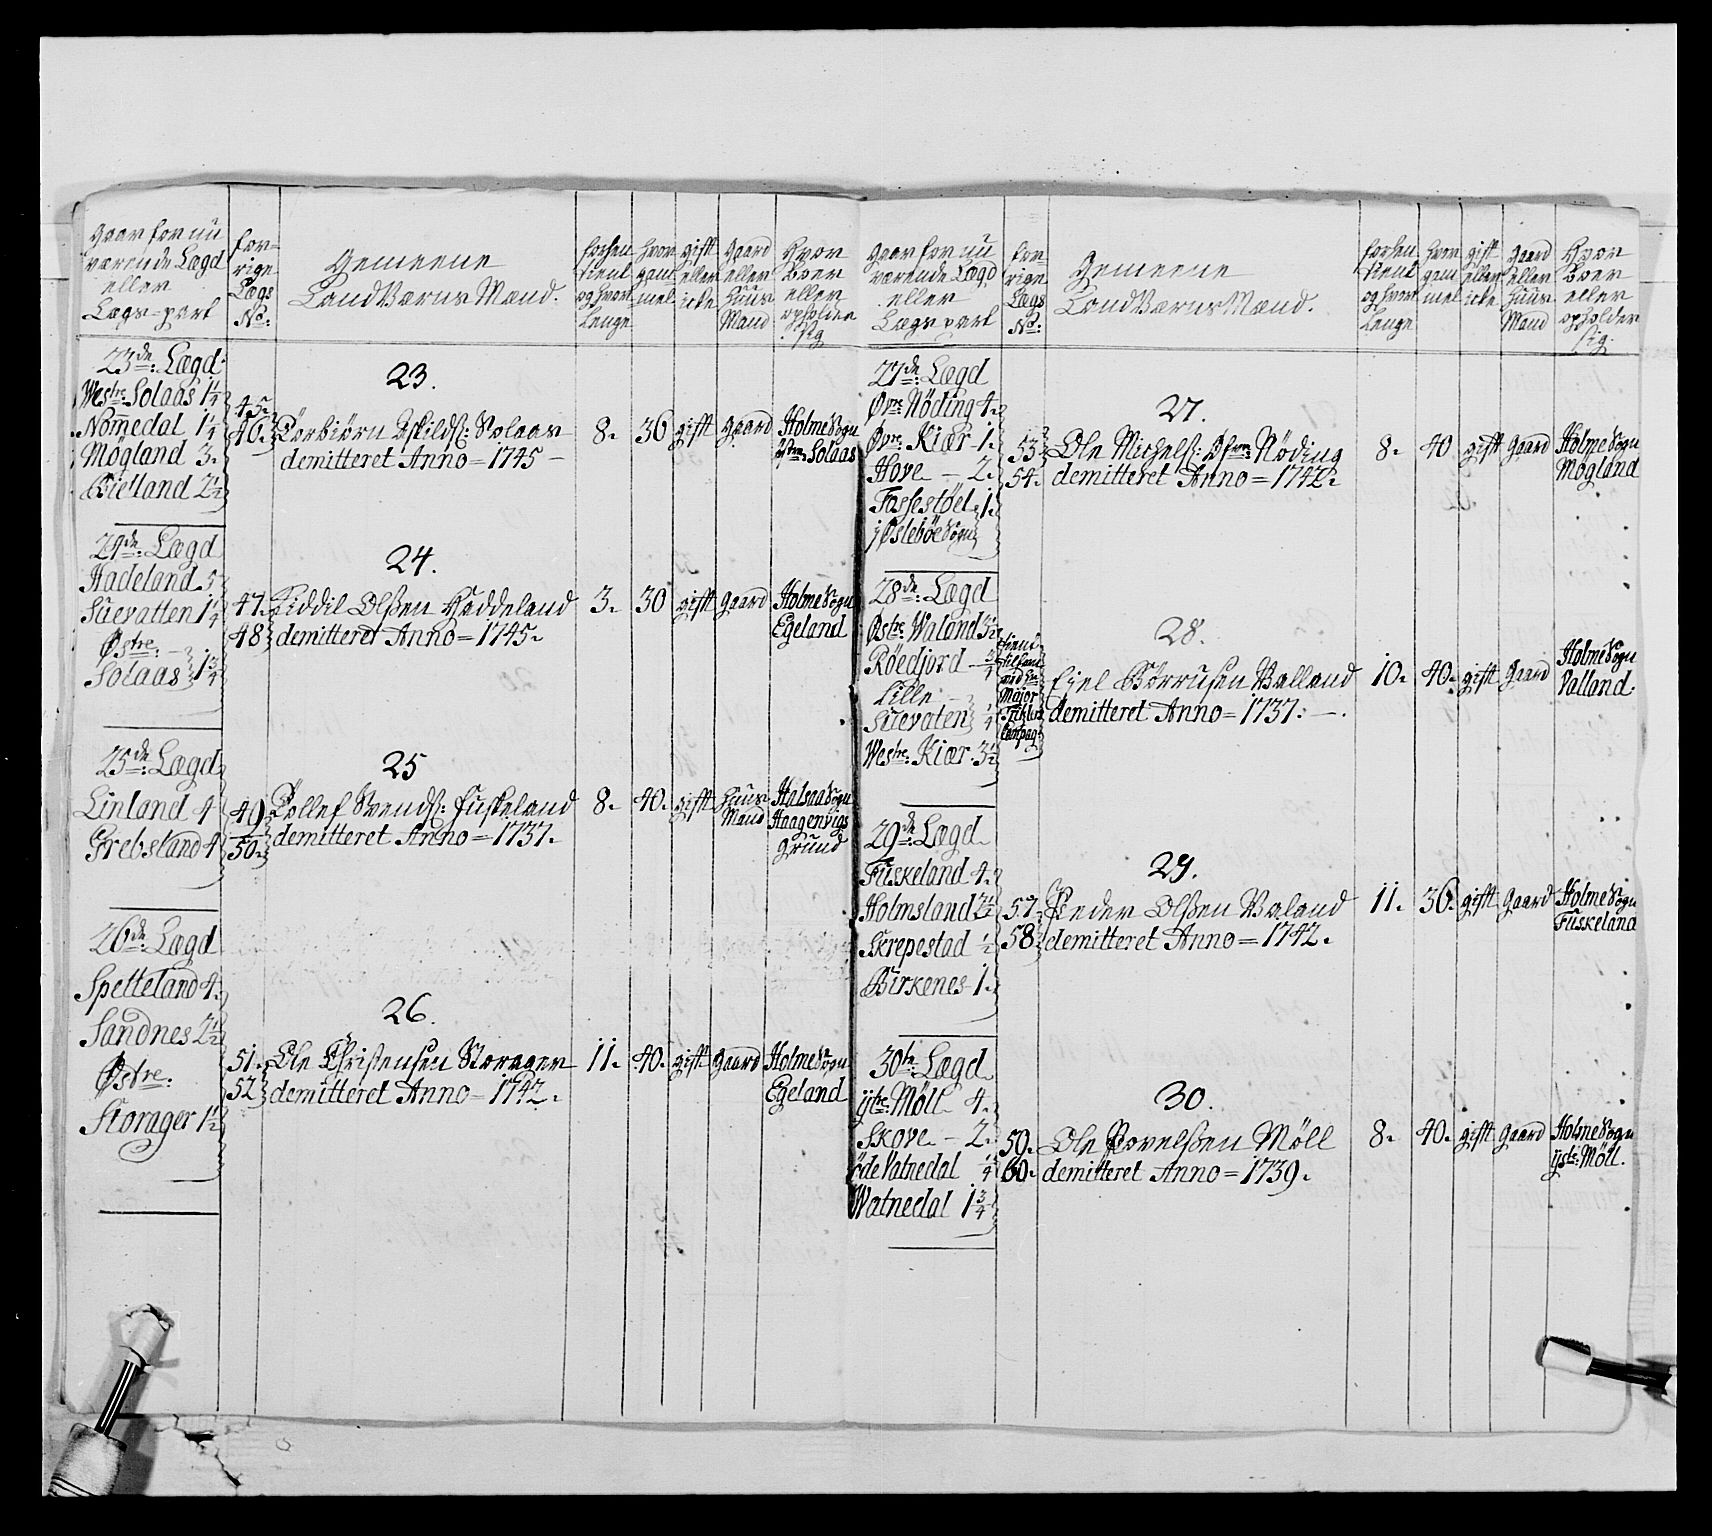 Gaar for nu
værende Lægd
eller
Lægs-part
for-
rige
Lægs
No:
Gemeene
LandVærns Mænd.
forhen
tient
og hvor
lenge
hvor
gam
mel
gift
eller
icke
Gaard
eller
Huus
Mand
Hvor
boer
eller
opholder
sig
23de: Lægd.
Westre: Solaas 1¼
Nomedal 1¼
Mögland 3.
Bielland 2½
45.
46.
23.
Torbiörn Eskilds: Solaas
demitteret Anno = 1745 —
8.
36
gift
gaard
Holme Sogn
Östre: Solaas
24de: Lægd
Hadeland 5
Suevatten 1¼
Østre: —
Solaas 1¾
47.
48
24.
Siddil Olsen Haddeland
demitteret Anno = 1745.
3.
30
gift
gaard
Holme Sogn
Egeland
25de: Lægd
Linland 4
Grebsland 4
49
50.
25
Tollef Svends: Fuskeland
demitteret Anno = 1737.
8.
40.
gift
Huus
Mand
Halsaa Sogn
Haagenvigs
grund
26de: Lægd
Spetteland 4.
Sandnes 2½
Østre:
Storager 1½
51.
52
26.
Ole Christensen Storager
demitteret Anno = 1742.
11.
40.
gift
gaard
Holme Sogn
Egeland
Gaar for nu
værende Lægd
eller
Lægs part
for
rige
Lægs
No:
Gemeene
LandVærns Mænd.
forhen
tient
og hvor
lenge
hvor
gam
mel
gift
eller
icke
gaard
eller
Huus
Mand
Hvor
boer
eller
opholder
sig.
27de: Lægd
Øvre: Nöding 4.
Øvre: Kiær 1.
Hove — 2.
Fossestöel 1.
j Øsleböe Sogn
53.
54.
27.
Ole Michels: Øfvre: Nöding
demitteret Anno = 1742.
8.
40
gift
gaard
Holme Sogn
Mögland
28de: Lægd
Østre: Waland 3½
Röedjord — ¾
Lille —
Suevaten ¼
Westre: Kiær. 3½
Major
28.
Eiel Börrusen Valland
demitteret Anno = 1737. —.
10.
40.
gift
gaard
Holme Sogn
Valland.
29de: Lægd
Fuskeland 4.
Holmsland 2½
Skrepestad ½
Birkenes 1.
57.
58
29.
Peder Olsen Valand
demitteret Anno = 1742.
11.
36.
gift
gaard
Holme Sogn
Fuskeland
30te: Lægd
ÿtre: Möll 4.
Skove — 2.
öde Vatnedal ¼
Watnedal 1¾
59.
60.
30.
Ole Povelsen Möll
demitteret Anno = 1739.
8.
40.
gift
gaard
Holme Sogn
ÿtre: Möll.